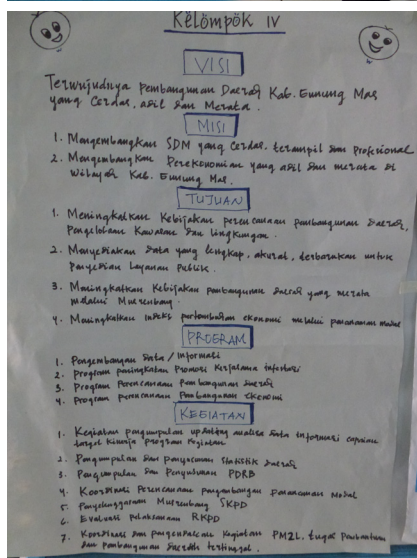 Kelompok IV
VISI
Terwujudnya pembangunan Daerah Kab. Gunung Mas
yang Cerdas, adil dan Merata.
MISI
1. Mengembangkan SDM yang Cerdas, terampil dan Profesional
2. Mengembangkan Perekonomian yang adil dan merata di
Wilayah Kab. Gunung Mas.
TUJUAN
1. Meningkatkan Kebijakan perencanaan pembangunan Daerah,
Pengelolaan Kawasan dan Lingkungan.
2. Menyediakan data yang lengkap, akurat, terbarukan untuk
Penyedian Layanan Publik.
3. Meningkatkan Kebijakan pembangunan daerah yang merata
melalui Musrenbang.
4. Meningkatkan Indeks pertumbuhan ekonomi melalui penanaman modal
PROGRAM
1. Pengembangan data / Informasi
2. Program peningkatan Promosi Kerjasama Investasi
3. Program Perencanaan Pembangunan daerah
4. Program perencanaan Pembangunan Ekonomi
KEGIATAN
1. Kegiatan pengumpulan updating analisa data Informasi capaian
target Kinerja program Kegiatan
2. Pengumpulan dan penyusunan Statistik daerah
3. Pengumpulan dan Penyusunan PDRB
4. Koordinasi Perencanaan pengembangan penanaman Modal
5. Penyelenggaraan Musrenbang SKPD
6. Evaluasi pelaksanaan RKPD
7. Koordinasi dan pengendalian Kegiatan PM2L, tugas pembantuan
dan pembangunan daerah tertinggal.